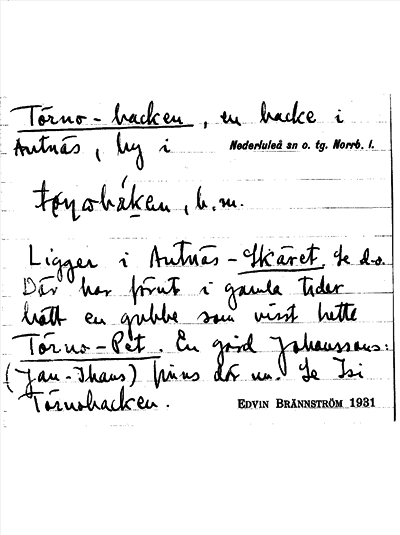 Törno-backen, en backe i
Antnäs, by i Nederluleå sn o. tg. Norrb. l.
tøṇobák̬en, b.m.
Ligger i Antnäs-Skäret. Se d.o.
Där har förut i gamla tider
bott en gubbe som visst hette
Törno-Pet. En gård Johanssons:
(Jan-Ihans) finns där nu. Se Isi
Törnobacken. EDVIN BRÄNNSTRÖM 1931